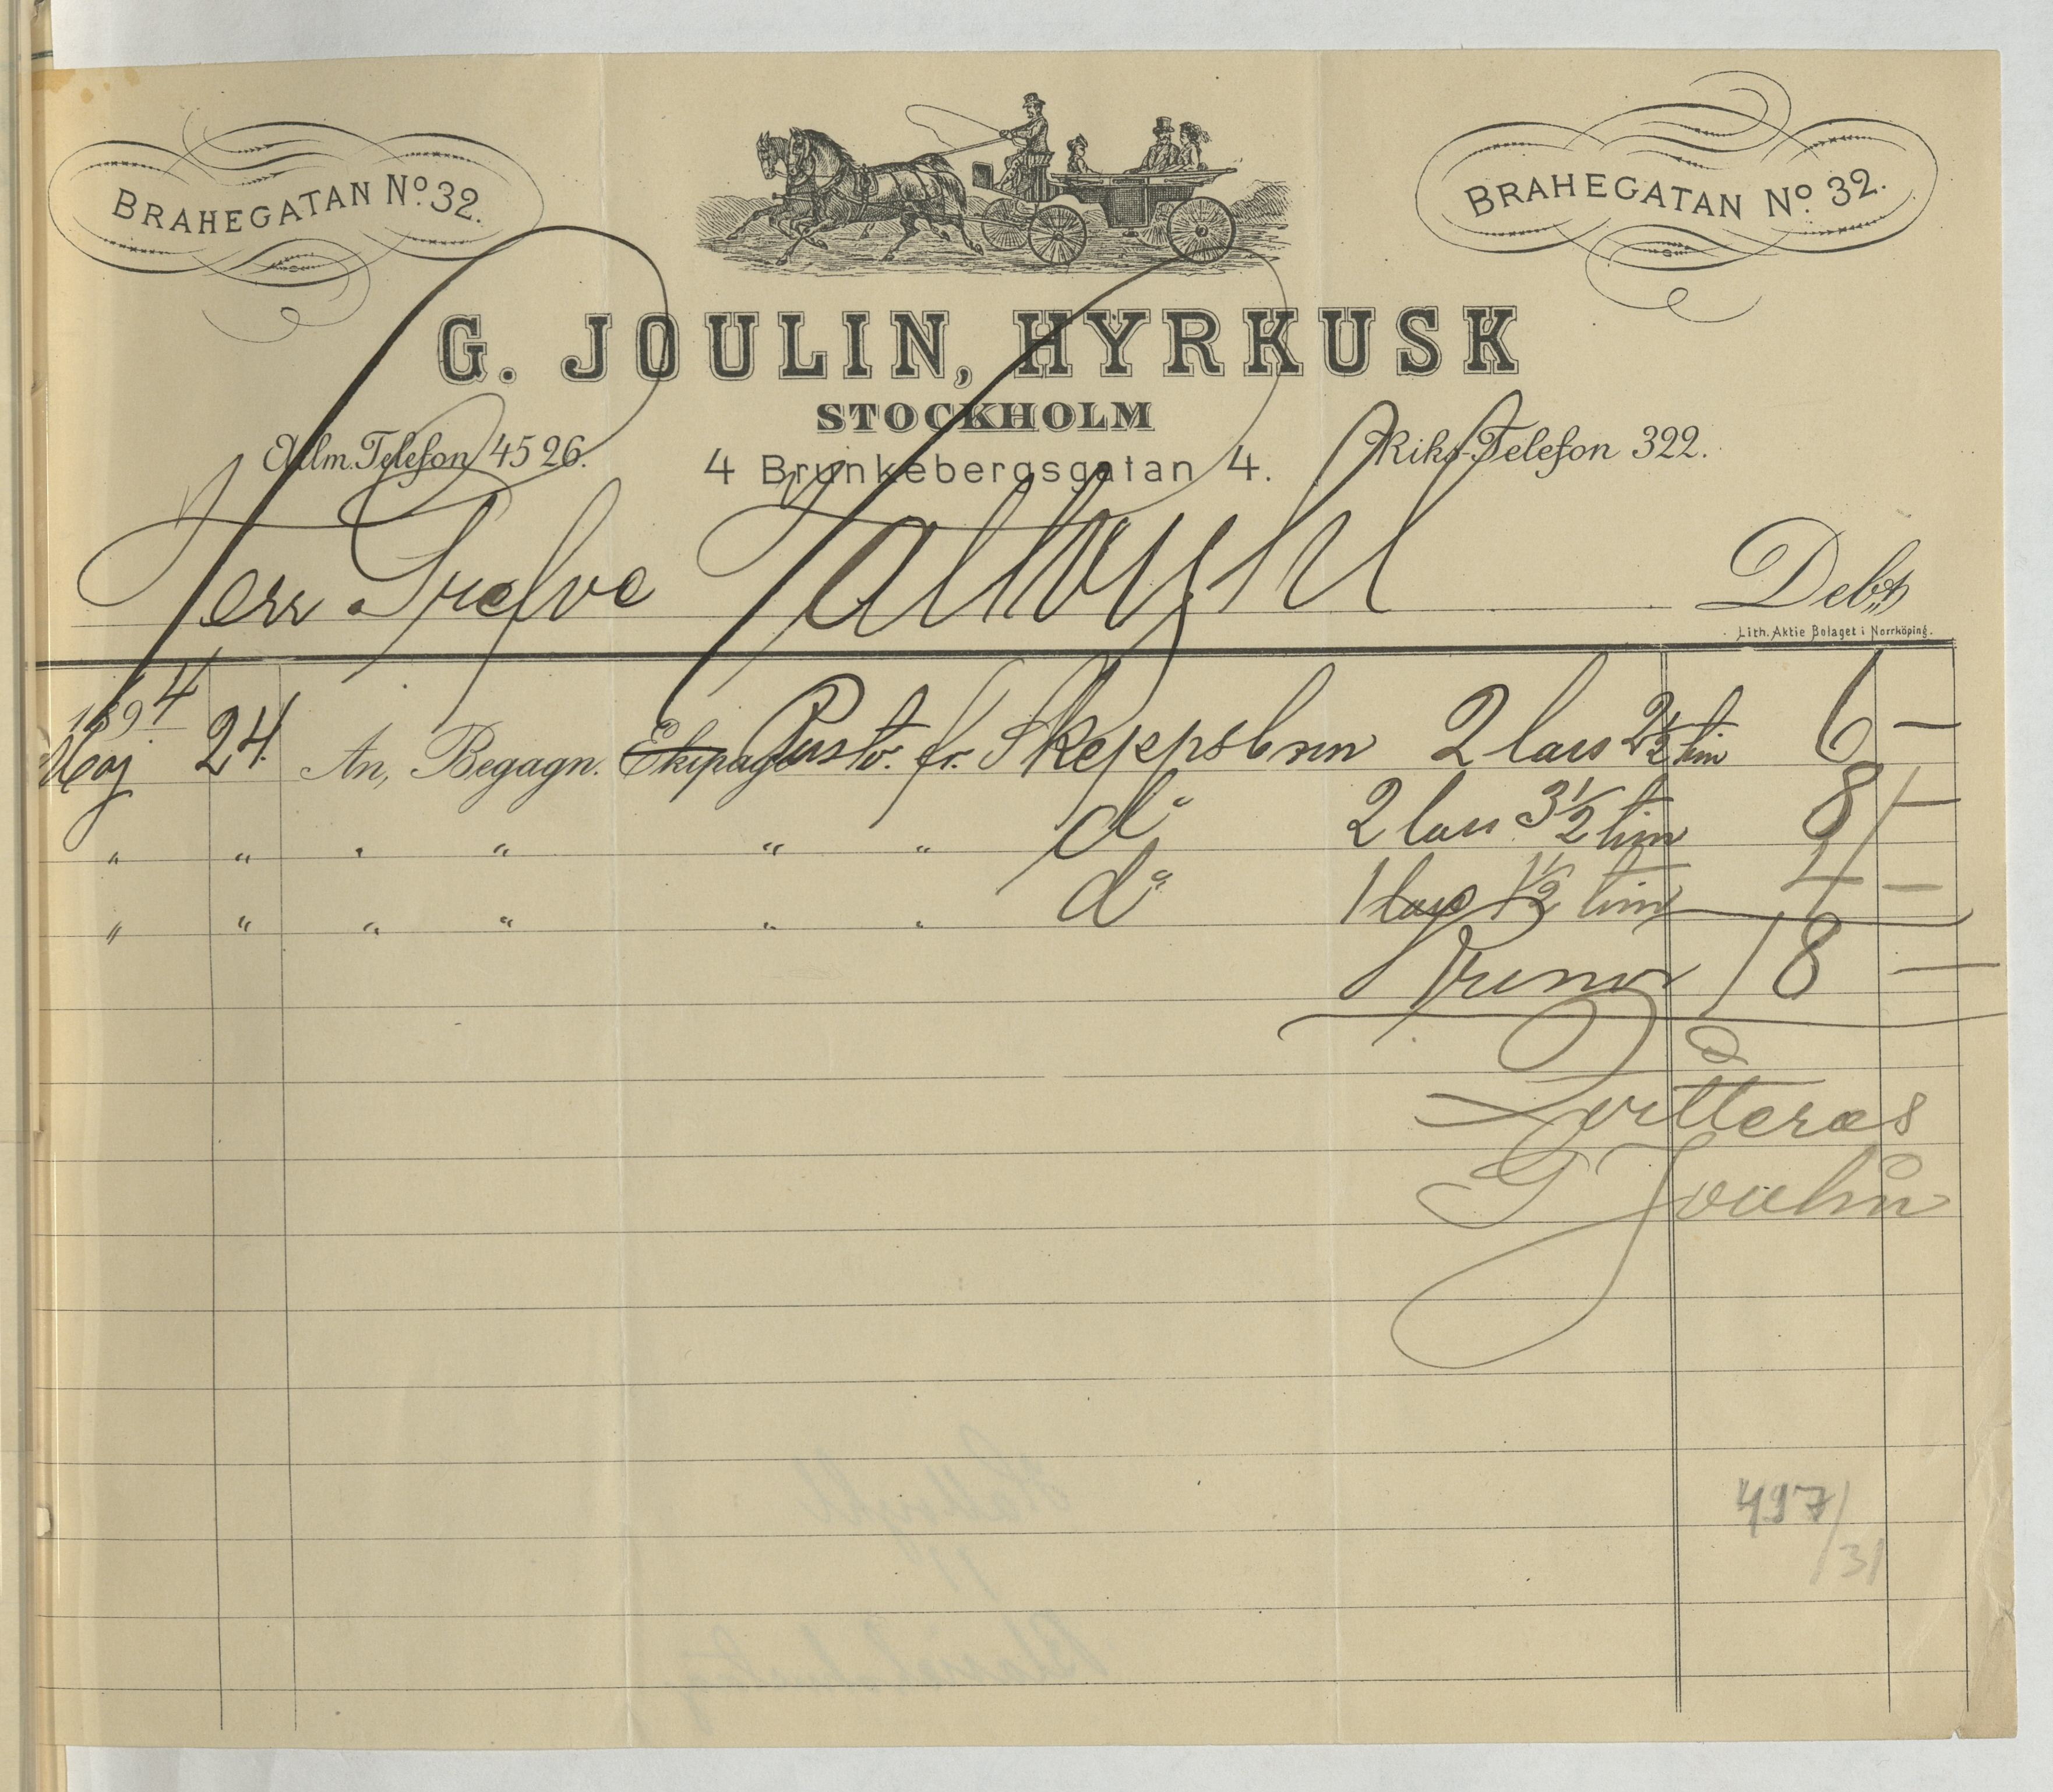 BRAHEGATAN No. 32.
BRAHEGATAN No 32.
G. JOULIN, HYRKUSK
STOCKHOLM
Allm. Telefon 4526.
4 Brunkebergsgatan 4.
Riks-Telefon 322.
Herr Grefve Hallwyhl Debet
Lith. Aktie Bolaget i Norrköping.
1894
Maj 24. An, Begagn. Ekipage fr. Skeppsbron 2 lass 2½ tim 6 —
" " " " " " do 2 lass 3½ tim 8 —
" " " " " " do 1 lass 1½ tim 4 —
Kronor 18 —
Qvitteras
G Joulin
417/31